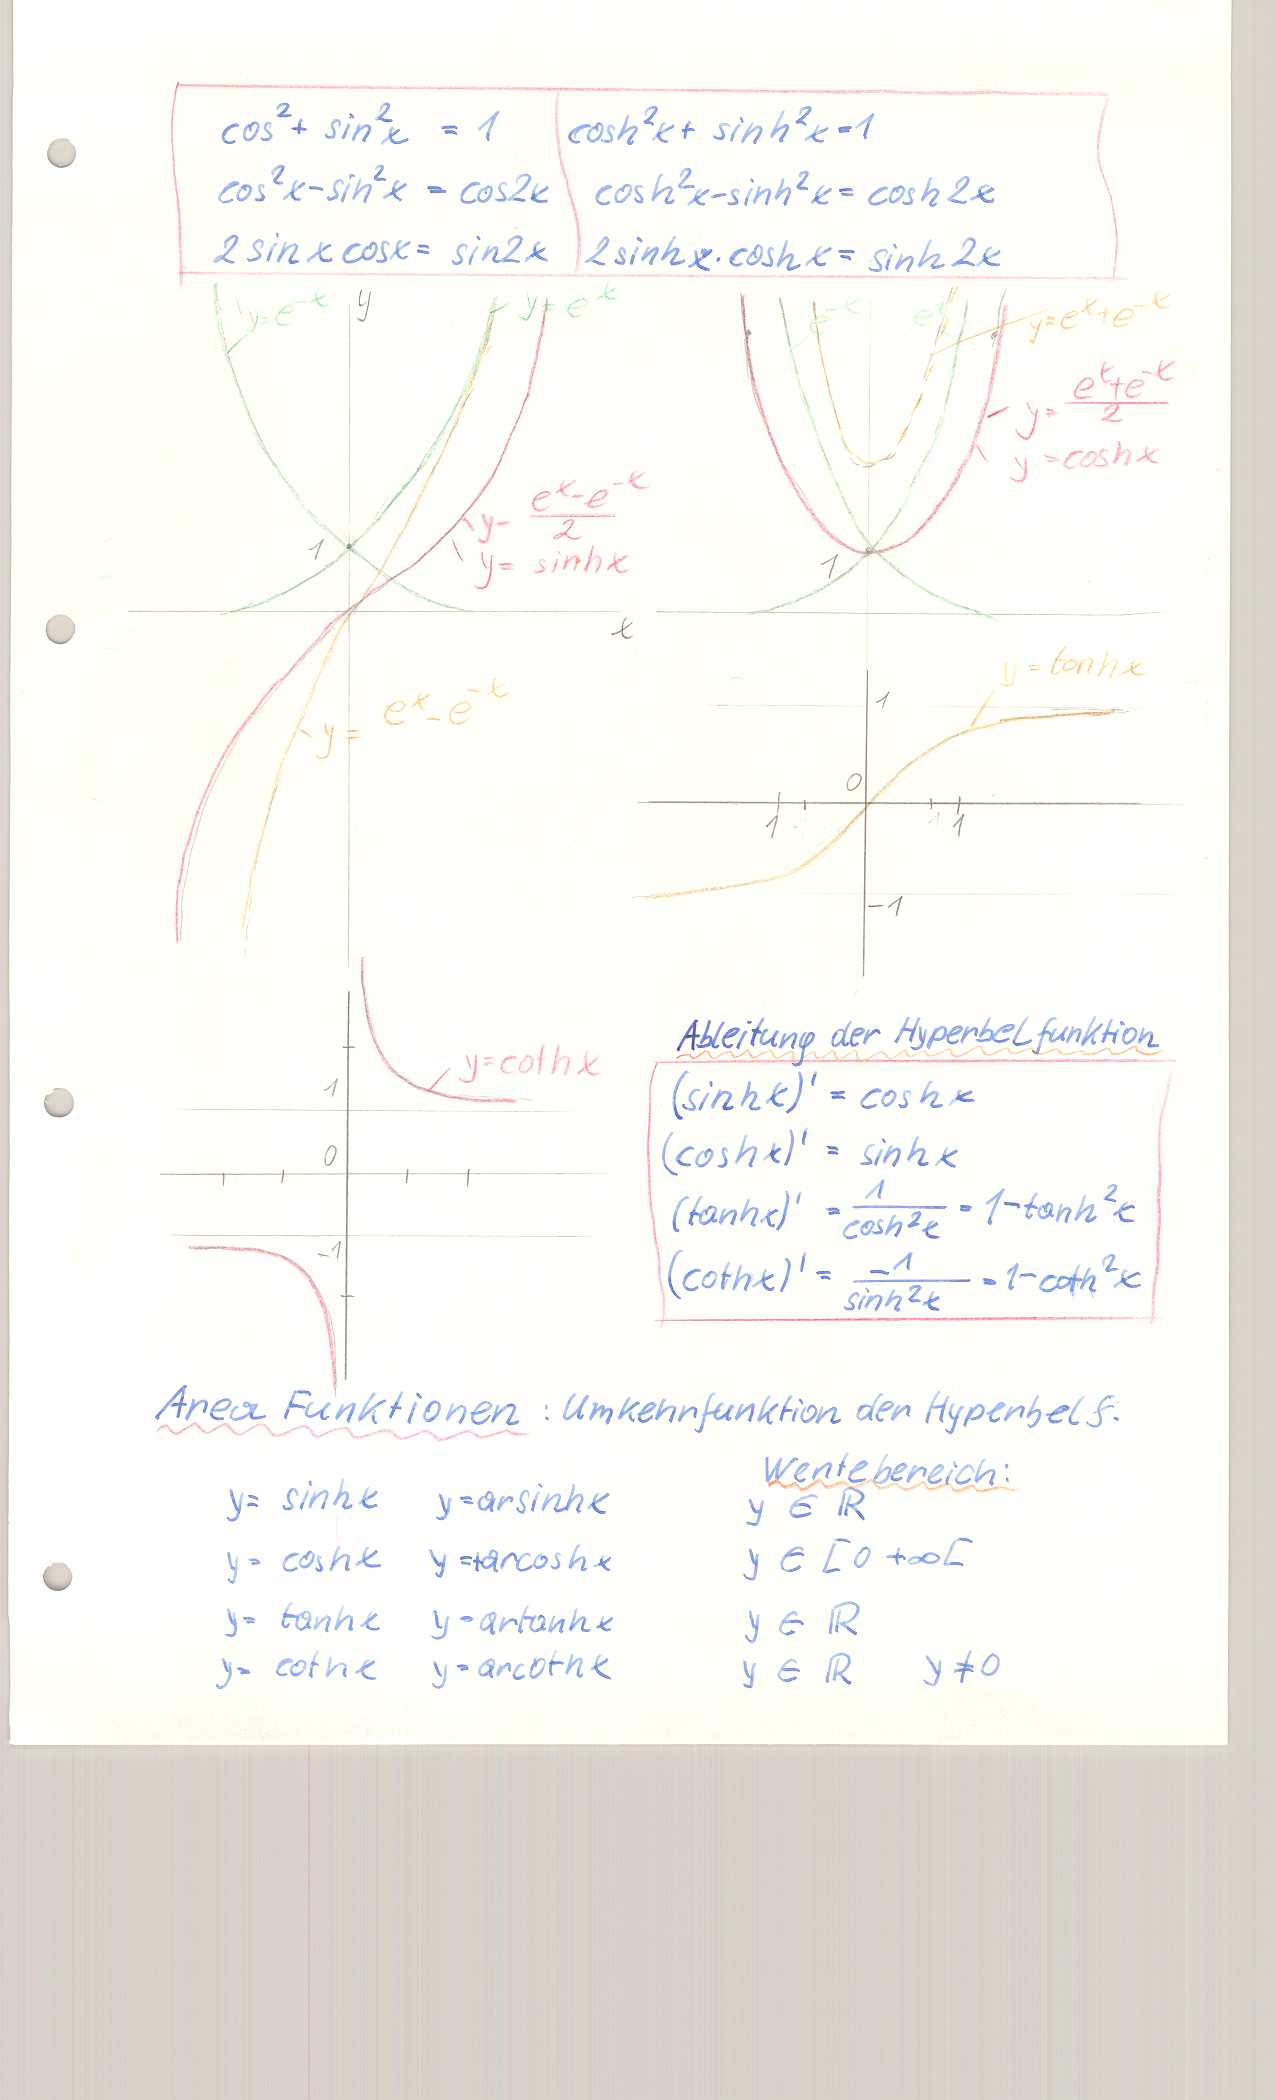 cos²+ sin²x = 1   cosh²x + sinh²x = 1
cos²x - sin²x = cos2x   cosh²x - sinh²x = cosh 2x
2 sin x cosx = sin2x   2 sinh x · cosh x = sinh 2x
y=e⁻ˣ   y   y=eˣ
e⁻ˣ   eˣ   y=eˣ+e⁻ˣ
y= (eˣ+e⁻ˣ)/2
y=coshx
1   y= (eˣ-e⁻ˣ)/2
y= sinhx
1
x
y= eˣ-e⁻ˣ
y=tanhx
1
0
1   1   1
-1
y=cothx
1
0
-1
Ableitung der Hyperbelfunktion
(sinhx)' = coshx
(coshx)' = sinhx
(tanhx)' = 1/cosh²x = 1-tanh²x
(cothx)' = -1/sinh²x = 1-coth²x
Area Funktionen : Umkehrfunktion der Hyperbel f.
Wertebereich:
y= sinhx   y=arsinhx   y ∈ ℝ
y= coshx   y=+arcoshx   y ∈ [0 +∞[
y= tanhx   y=artanhx   y ∈ ℝ
y= cothx   y=arcothx   y ∈ ℝ   y≠0